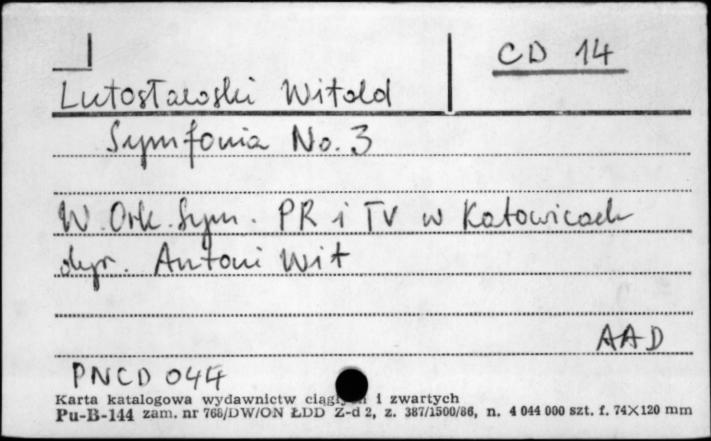 CD 14
Lutosławski Witold
Symfonia No. 3
W. Ork. Sym. PR i TV w Katowicach
dyr. Antoni Wit
AAD
PNCD 044
Karta katalogowa wydawnictw ciągłych i zwartych
Pu-B-144 zam. nr 768/DW/ON ŁDD Z-d 2, z. 387/1500/86, n. 4 044 000 szt. f. 74×120 mm